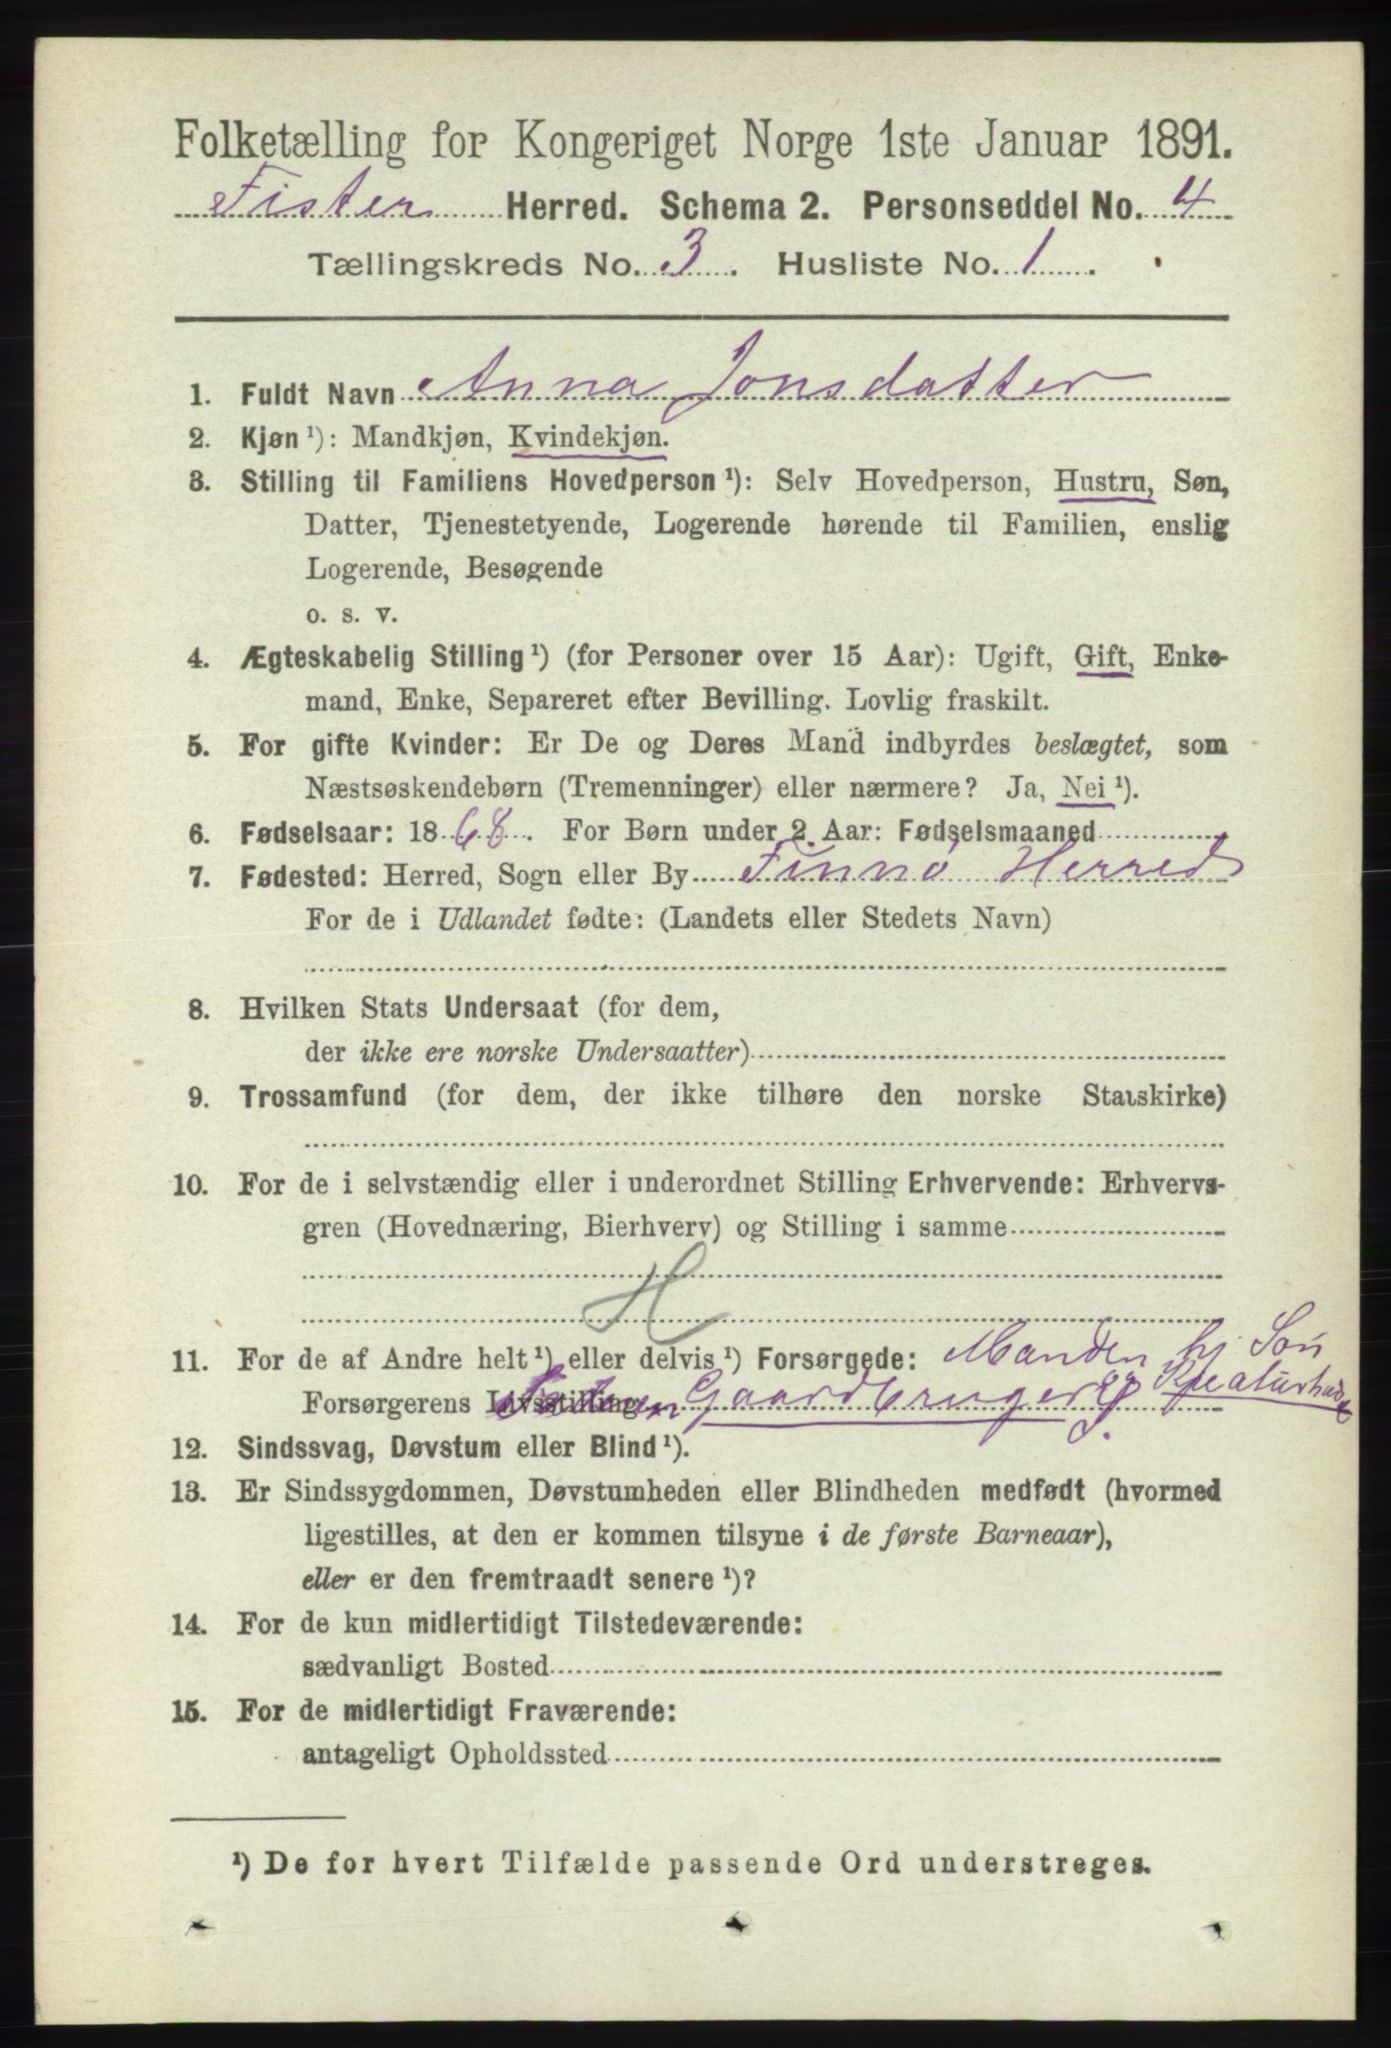 Folketælling for Kongeriget Norge 1ste Januar 1891.
Fister Herred. Schema 2. Personseddel No. 4
Tællingskreds No. 3. Husliste No. 1.
1. Fuldt Navn Anna Jonsdatter
2. Kjøn ¹): Mandkjøn, Kvindekjøn.
3. Stilling til Familiens Hovedperson ¹): Selv Hovedperson, Hustru, Søn,
Datter, Tjenestetyende, Logerende hørende til Familien, enslig
Logerende, Besøgende
o. s. v.
4. Ægteskabelig Stilling ¹) (for Personer over 15 Aar): Ugift, Gift, Enke-
mand, Enke, Separeret efter Bevilling. Lovlig fraskilt.
5. For gifte Kvinder: Er De og Deres Mand indbyrdes beslægtet, som
Næstsøskendebørn (Tremenninger) eller nærmere? Ja, Nei ¹).
6. Fødselsaar: 1868. For Børn under 2 Aar: Fødselsmaaned
7. Fødested: Herred, Sogn eller By Finnø Herred
For de i Udlandet fødte: (Landets eller Stedets Navn)
8. Hvilken Stats Undersaat (for dem,
der ikke ere norske Undersaatter)
9. Trossamfund (for dem, der ikke tilhøre den norske Statskirke)
10. For de i selvstændig eller i underordnet Stilling Erhvervende: Erhvervs-
gren (Hovednæring, Bierhverv) og Stilling i samme
H
11. For de af Andre helt ¹) eller delvis ¹) Forsørgede: Manden hj Søn
Forsørgerens Livsstilling Gaardbruger og
12. Sindssvag, Døvstum eller Blind ¹).
13. Er Sindssygdommen, Døvstumheden eller Blindheden medfødt (hvormed
ligestilles, at den er kommen tilsyne i de første Barneaar),
eller er den fremtraadt senere ¹)?
14. For de kun midlertidigt Tilstedeværende:
sædvanligt Bosted
15. For de midlertidigt Fraværende:
antageligt Opholdssted
¹) De for hvert Tilfælde passende Ord understreges.